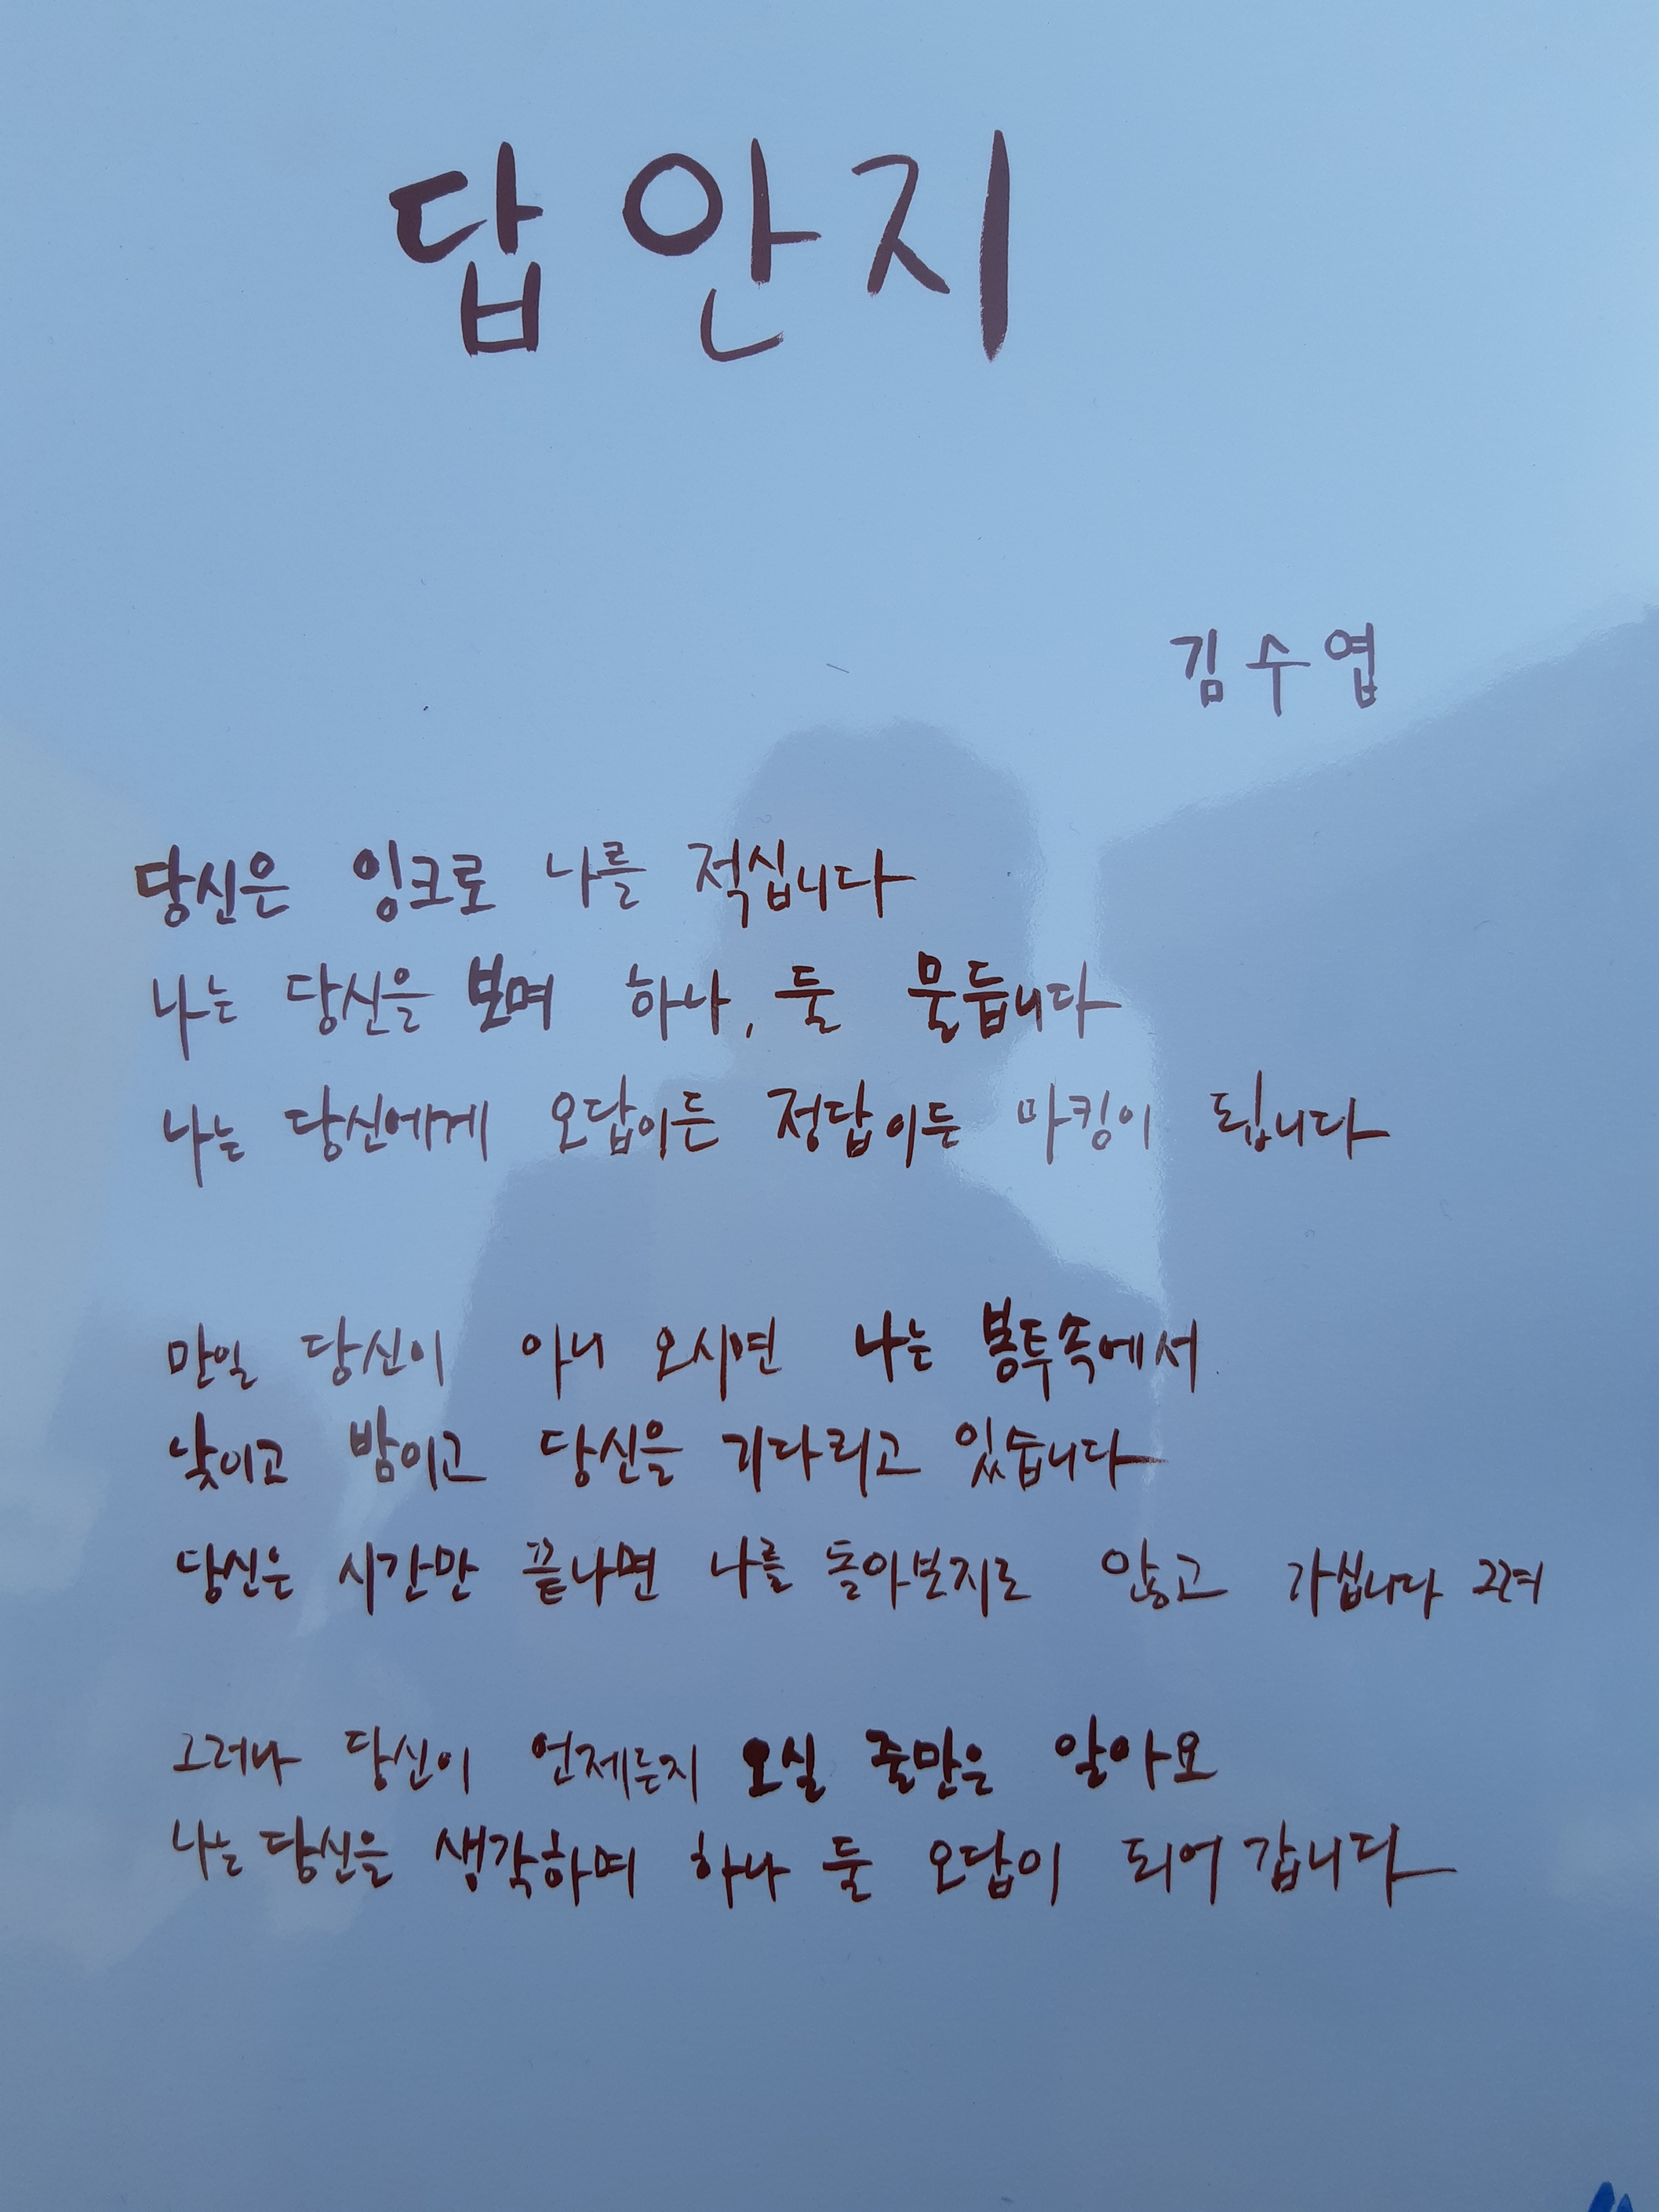 답안지
김수엽
당신은 잉크로 나를 적십니다
나는 당신을 보며 하나, 둘 물듭니다
나는 당신에게 오답이든 정답이든 마킹이 됩니다
만일 당신이 아니 오시면 나는 봉투속에서
낮이고 밤이고 당신을 기다리고 있습니다
당신은 시간만 끝나면 나를 돌아보지도 않고 가십니다 그려
그러나 당신이 언제든지 오실 줄만은 알아요
나는 당신을 생각하며 하나 둘 오답이 되어 갑니다